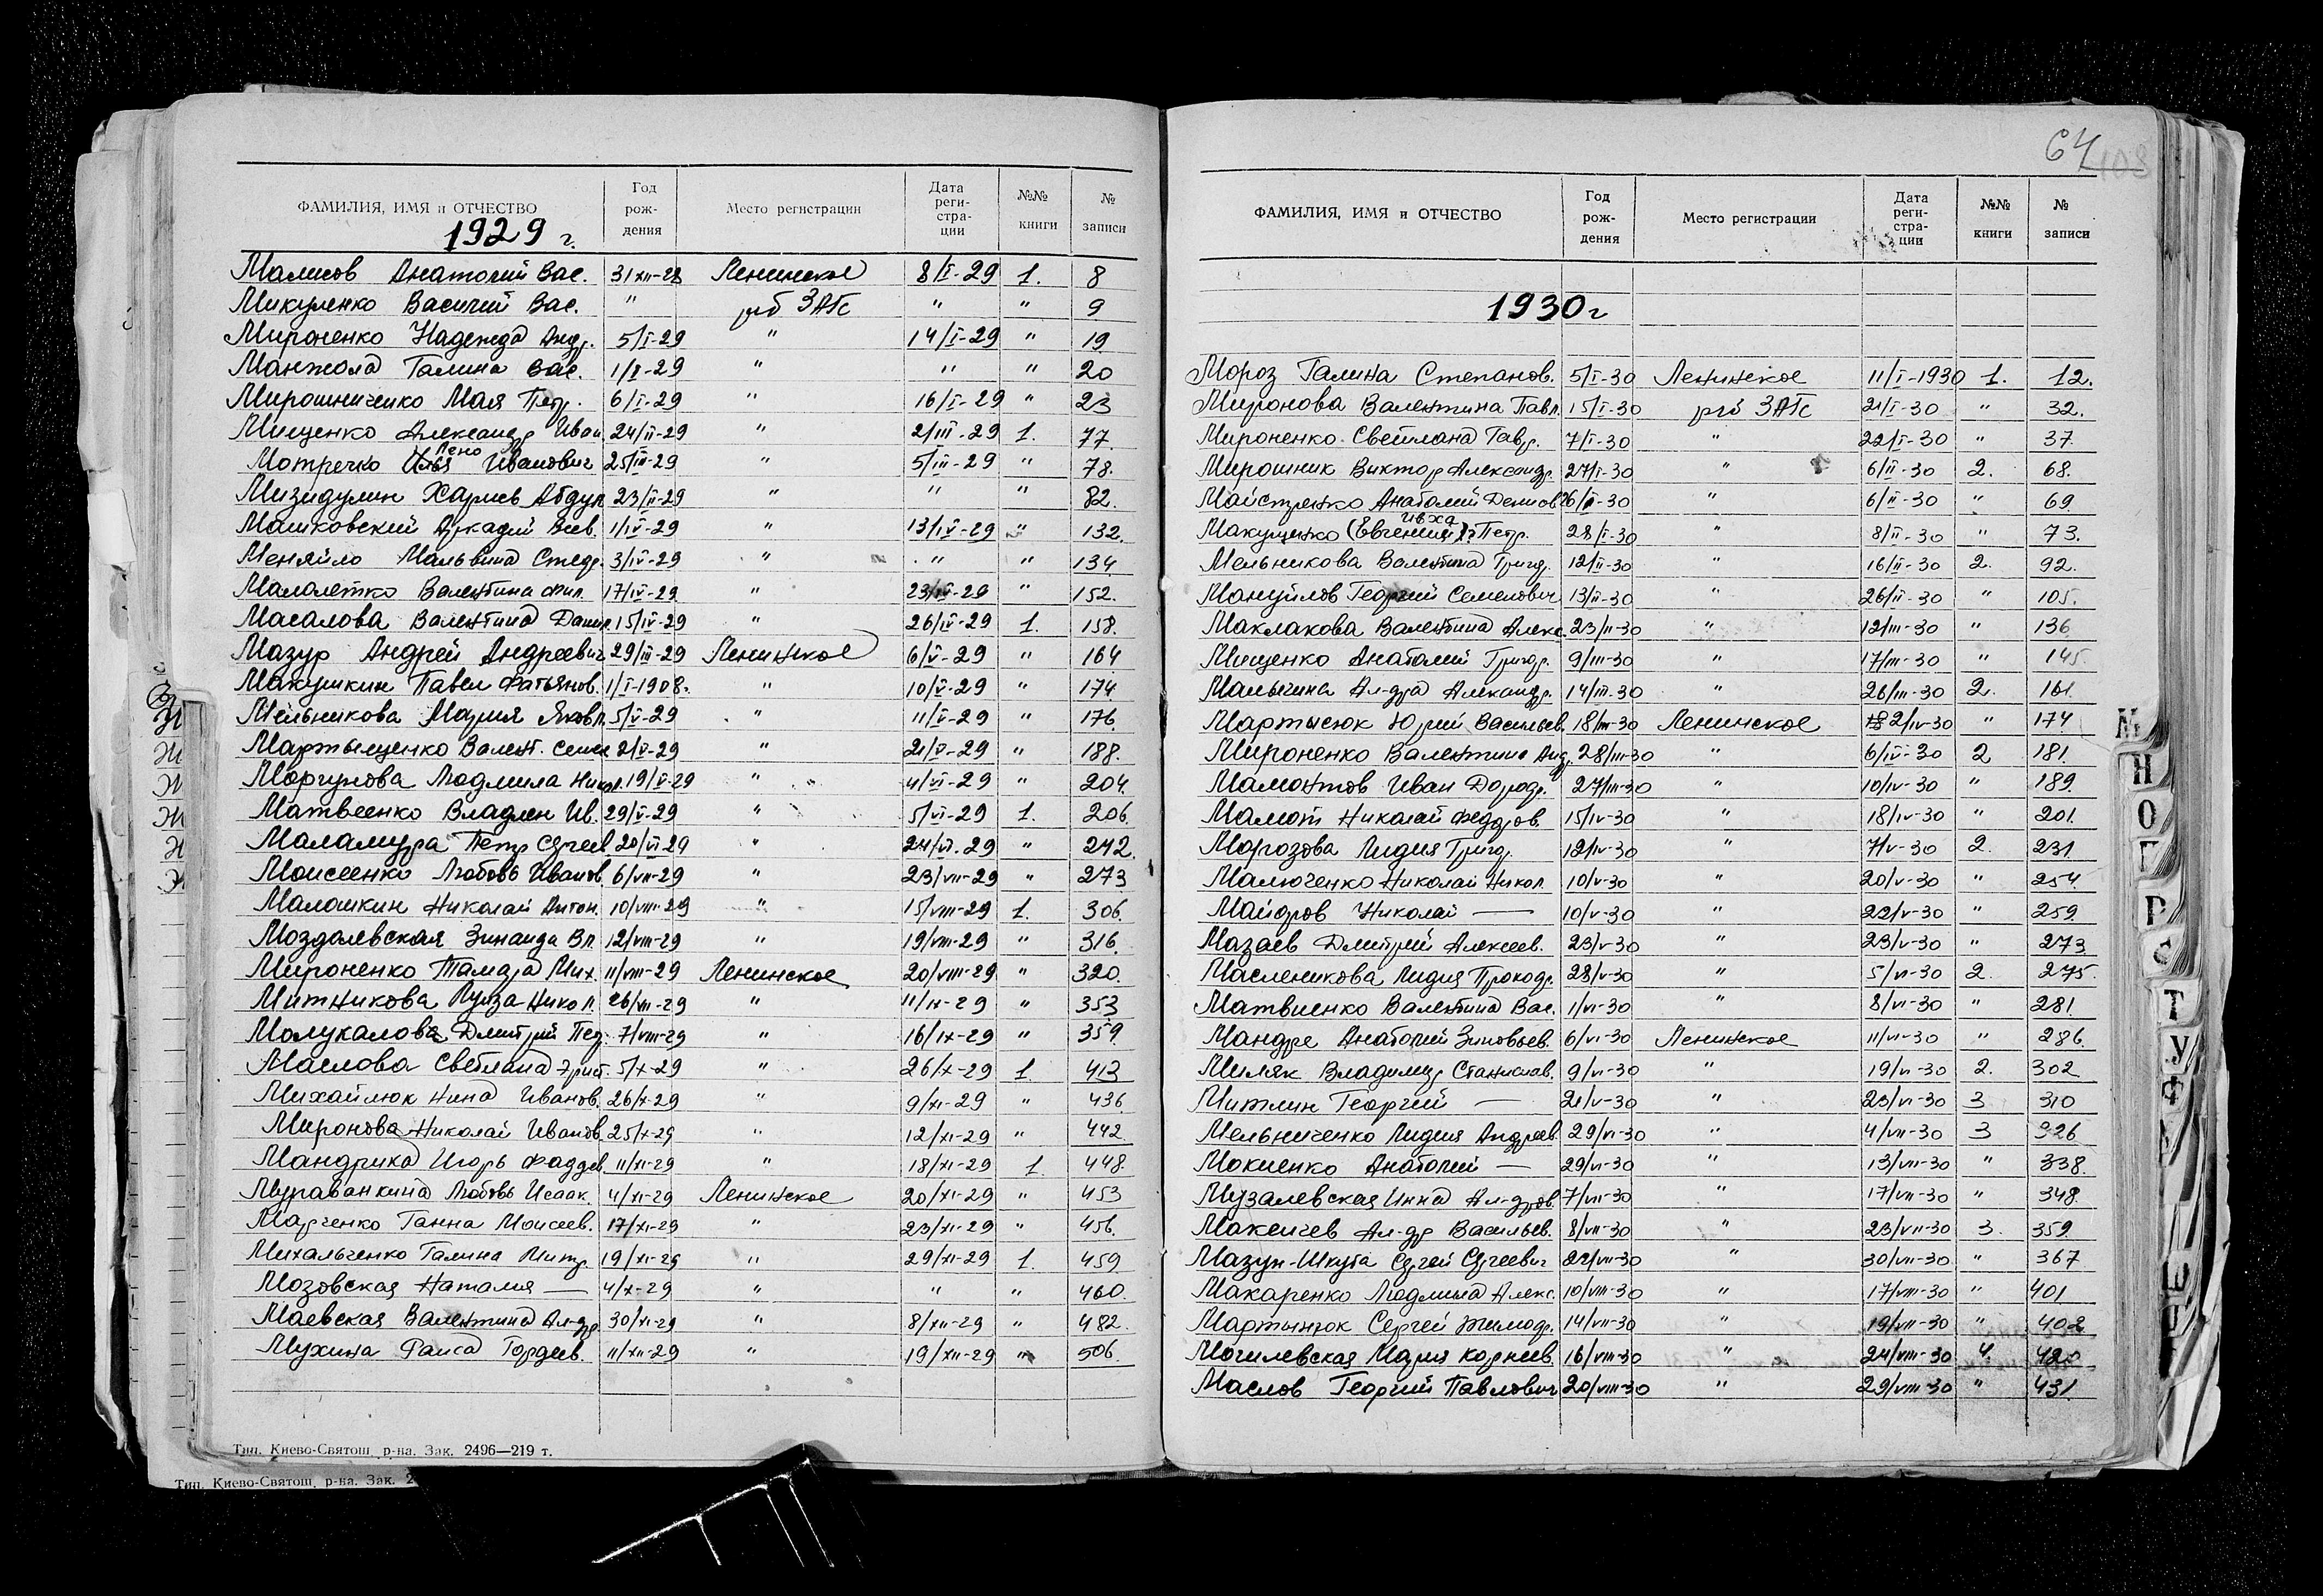 ФАМИЛИЯ, ИМЯ и ОТЧЕСТВО Год рождения Место регистрации Дата регистрации №№ книги № записи
1929 г.
Малисов Анатолий Вас. 31/XII-28 Ленинское 8/I-29 1. 8
Микуленко Василий Вас. " р/б ЗАГс " " 9
Мироненко Надежда Андр. 5/I-29 " 14/I-29 " 19
Манжола Галина Вас. 1/I-29 " " " 20
Мирошниченко Мая Петр. 6/I-29 " 16/I-29 " 23
Мищенко Александр Иван. 24/II-29 " 2/III-29 1. 77
Мотречко Иванович 25/II-29 " 5/III-29 " 78.
Мизидулин Харис Абдул 23/II-29 " " " 82.
Машковский Аркадий 1/IV-29 " 13/IV-29 " 132.
Меняйло Мальвина 3/IV-29 " " " 134
Малолетко Валентина Фил. 17/IV-29 " 23/IV-29 " 152.
Масалова Валентина Данил. 15/IV-29 " 26/IV-29 1. 158.
Мазур Андрей Андреевич 29/III-29 Ленинское 6/V-29 " 164
Макушкин Павел Фатьянов. 1/I-1908. " 10/V-29 " 174
Мельникова Мария Яковл. 5/V-29 " 11/V-29 " 176.
Мартыщенко Валент. Семен 2/V-29 " 21/V-29 " 188.
Моргунова Людмила Никол. 19/V-29 " 4/VI-29 " 204.
Матвеенко Владлен Ив. 29/V-29 " 5/VI-29 1. 206.
Маламура Петр Сергеев 20/VI-29 " 24/VI-29 " 242.
Моисеенко Любовь Иванов. 6/VII-29 " 23/VII-29 " 273
Малашкин Николай Антон. 10/VIII-29 " 15/VIII-29 1. 306.
Моздолевская Зинаида Вл. 12/VIII-29 " 19/VIII-29 " 316.
Мироненко Тамара Мих. 11/VIII-29 Ленинское 20/VIII-29 " 320.
Митникова Луиза Никол. 26/VIII-29 " 11/IX-29 " 353
Молукалова Дмитрий Пет. 7/VIII-29 " 16/IX-29 " 359.
Маслова Светлана 5/X-29 " 26/X-29 1. 413
Михайлюк Нина Иванов. 26/X-29 " 9/XI-29 " 436
Миронова Николай Иванов. 25/X-29 " 12/XI-29 " 442
Мандрика Игорь Фаддев. 11/XI-29 " 18/XI-29 1. 448.
Мураванкина Любовь Исаак. 4/XI-29 Ленинское 20/XI-29 " 453
Марченко Ганна Моисеев. 17/XI-29 " 23/XI-29 " 456.
Михальченко Галина Митр. 19/XI-29 " 29/XI-29 1. 459.
Мозовская Наталия — 4/X-29 " " " 460.
Маевская Валентина Ал-др. 30/XI-29 " 8/XII-29 " 482.
Мухина Раиса Гордеев. 11/XII-29 " 19/XII-29 " 506.
Тип. Киево-Святош. р-на. Зак. 2496—219 т.
Тип. Киево-Святош. р-на. Зак. 2
64
108
ФАМИЛИЯ, ИМЯ и ОТЧЕСТВО Год рождения Место регистрации Дата регистрации №№ книги № записи
1930 г
Мороз Галина Степанов. 5/I-30 Ленинское 11/I-1930 1. 12.
Миронова Валентина Павл. 15/I-30 р/б ЗАГс 21/I-30 " 32.
Мироненко Светлана Гавр. 7/I-30 " 22/I-30 " 37.
Мирошник Виктор Александр. 27/I-30 " 6/II-30 2. 68.
Майстренко Анатолий Денисов 26/I-30 " 6/II-30 " 69.
Макущенко (Евгения) Петр. 28/I-30 8/II-30 " 73.
Мельникова Валентина Григор. 12/II-30 " 16/II-30 2. 92.
Мануйлов Георгий Семенович 13/II-30 " 26/II-30 " 105.
Маклакова Валентина Алекс. 23/II-30 " 12/III-30 " 136
Мищенко Анатолий Григор. 9/III-30 " 17/III-30 " 145.
Малыгина Ал-дра Александр. 14/III-30 " 26/III-30 2. 161.
Мартысюк Юрий Васильев. 18/III-30 Ленинское 2/IV-30 " 174
Мироненко Валентина Андр. 28/III-30 " 6/IV-30 2 181.
Мамонтов Иван Дороф. 27/III-30 " 10/IV-30 " 189.
Мамот Николай Федоров. 15/IV-30 " 18/IV-30 " 201.
Морозова Лидия Григор. 12/IV-30 " 7/V-30 2. 231.
Малюченко Николай Никол. 10/V-30 " 20/V-30 " 254.
Майоров Николай — 10/V-30 " 22/V-30 " 259.
Мазаев Дмитрий Алексеев. 23/V-30 " 23/V-30 " 273
Масленикова Лидия Прокоф. 28/V-30 " 5/VI-30 2. 275.
Матвиенко Валентина Вас. 1/VI-30 " 8/VI-30 " 281.
Мандре Анатолий Зиновьев. 6/VI-30 Ленинское 11/VI-30 " 286.
Миляк Владимир Станислав. 9/VI-30 " 19/VI-30 2. 302
Митлин Георгий — 21/V-30 " 23/VI-30 3 310
Мельниченко Лидия Андреев. 29/VI-30 " 4/VII-30 3 326
Мокиенко Анатолий — 29/VI-30 " 13/VII-30 " 338.
Музалевская Инна Ал-дров. 7/VII-30 " 17/VII-30 " 348.
Макеичев Ал-др Васильев. 8/VII-30 " 23/VII-30 3. 359.
Мазун-Шкута Сергей Сергеевич 22/VII-30 " 30/VII-30 " 367
Макаренко Людмила Алекс. 10/VIII-30 " 17/VIII-30 " 401
Мартынюк Сергей Тимоф. 14/VIII-30 " 19/VIII-30 " 402
Могилевская Мария Корнеев. 16/VIII-30 " 24/VIII-30 4. 420
Маслов Георгий Павлович 20/VIII-30 " 29/VIII-30 " 431.
М
Н
О
П
Р
С
Т
У
Ф
Ш